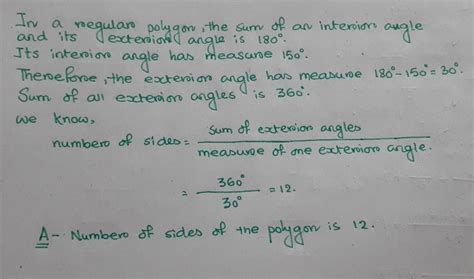 In a regular polygon, the sum of an interior angle
and its exterior angle is 180°.
Its interior angle has measure 150°.
Therefore, the exterior angle has measure 180°-150°=30°.
Sum of all exterior angles is 360°.
we know,
number of sides = sum of exterior angles / measure of one exterior angle.
= 360° / 30° = 12.
A- Number of sides of the polygon is 12.